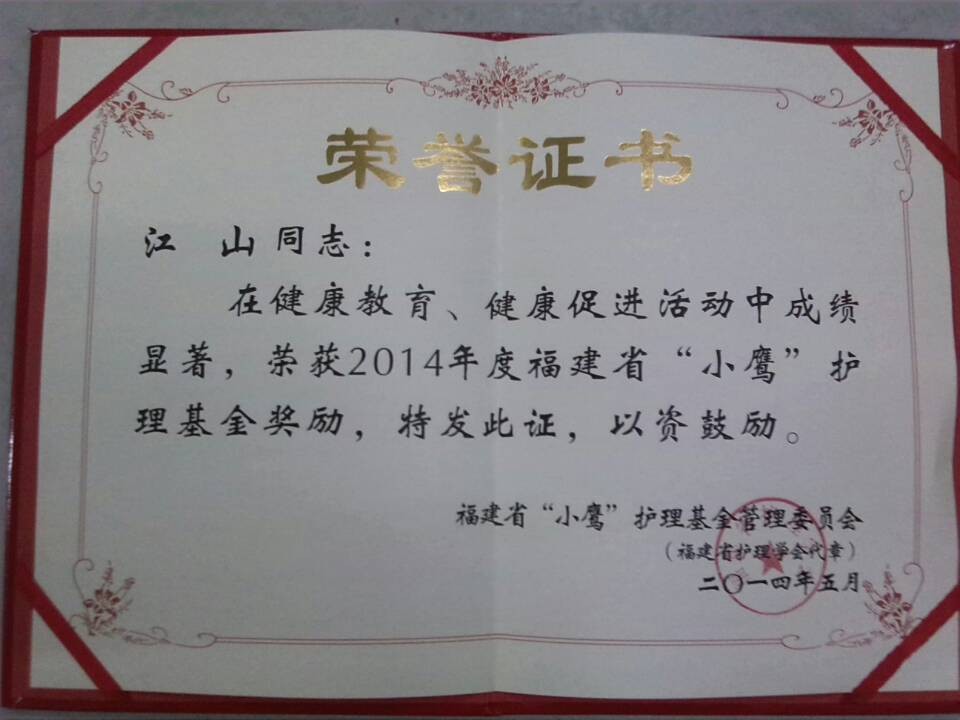 荣誉证书
江 山同志：
在健康教育、健康促进活动中成绩
显著，荣获2014年度福建省“小鹰”护
理基金奖励，特发此证，以资鼓励。
福建省“小鹰”护理基金管理委员会
（福建省护理学会代章）
二〇一四年五月